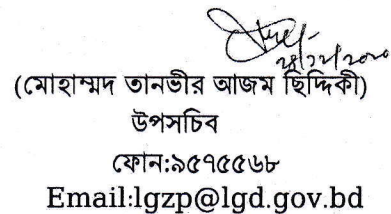 (মোহাম্মদ তানভীর আজম ছিদ্দিকী)
উপসচিব
ফোন:৯৫৭৫৫৬৮
Email:lgzp@lgd.gov.bd